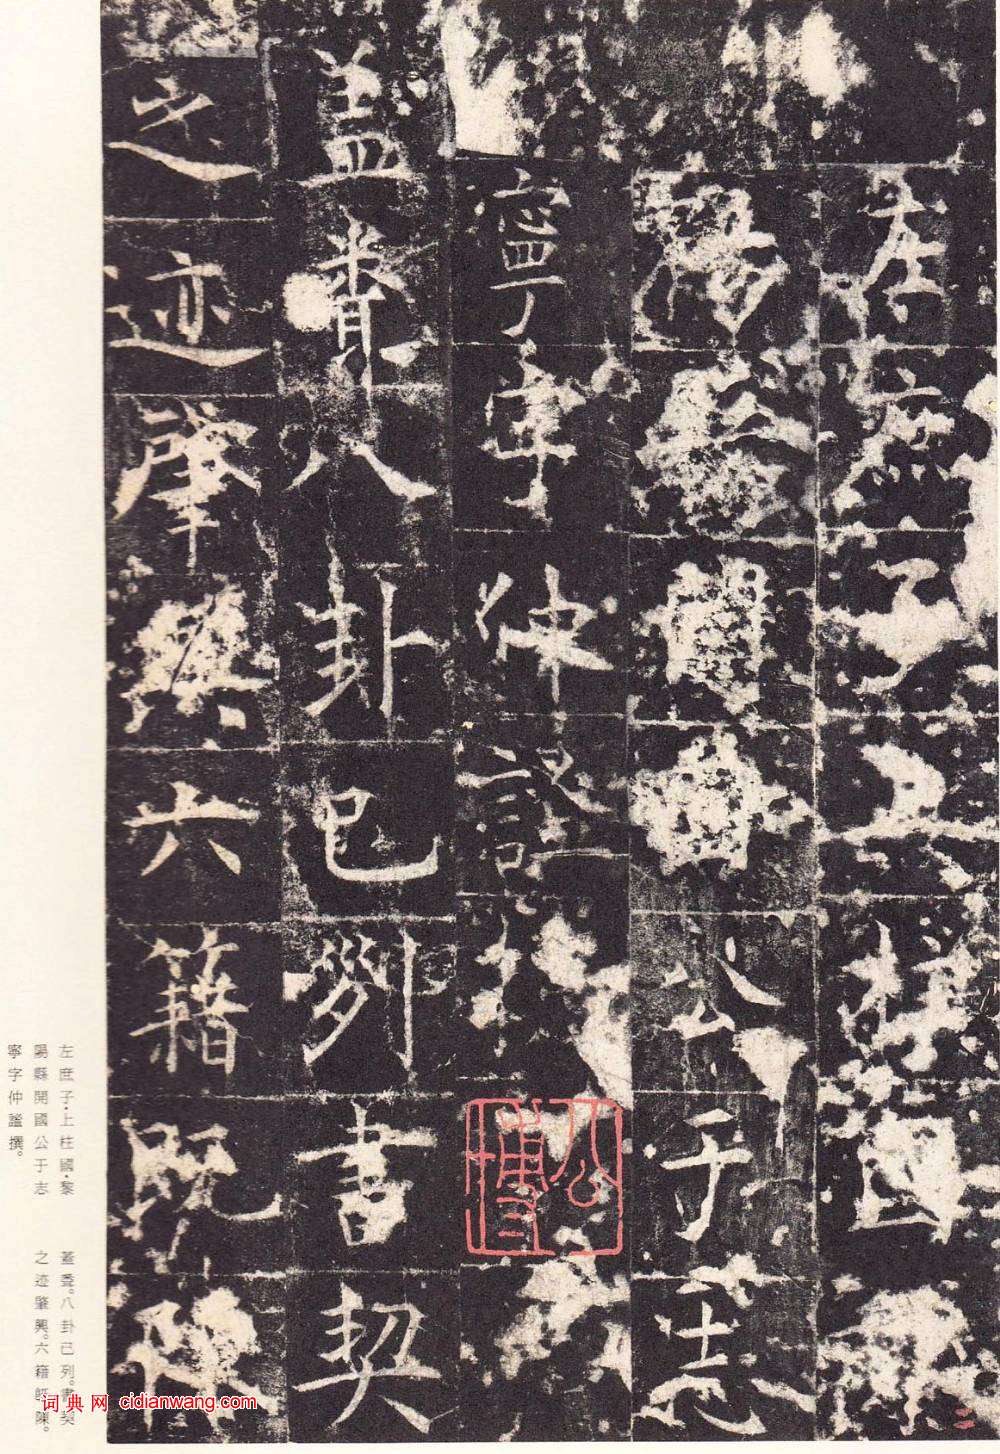 左庶子上柱國黎
陽縣開國公于志
寧字仲謐撰
蓋八卦已列書契
之迹肇興六籍既陳
左庶子·上柱國·黎
陽縣開國公于志
寧字仲謐撰。
蓋。八卦已列。書契
之迹肇興。六籍既陳。
词典网 cidianwang.com